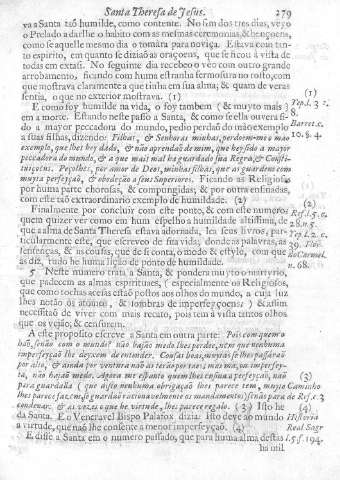 Santa Theresa de Jesus. 279
va a Santa taõ humilde, como contente. No fim dos tres dias, veyo
o Prelado a darlhe o habito com as mesmas ceremonias, & bençoens,
como se aquelle mesmo dia o tomàra para noviça. Estava com tan-
to espirito, em quanto se diziaõ as oraçoens, que se ficou à vista de
todas em extasi. No seguinte dia recebeo o veo com outro grande
arrobamento, ficando com huma estranha fermosura no rosto, com
que mostrava claramente a que tinha em sua alma; & quam de veras
sentia, o que no exterior mostrava. (1)
E como foy humilde na vida, o foy tambem (& muyto mais)
em a morte. Estando neste passo a Santa, & como se ella ouvera si-
do a mayor peccadora do mundo, pedio perdaõ do mào exemplo
a suas filhas, dizendo: Filhas, & Senhoras minhas, perdoem-me o mào
exemplo, que lhes hey dado, & não aprendaõ de mim, que hey sido a mayor
peccadora do mundo, & a que mais mal ha guardado sua Regra, & Consti-
tuiçoens. Peçolhes, por amor de Deos, minhas filhas, que as guardem com
muyta perfeyçaõ, & obedeçaõ a seus Superiores. Ficando as Religiosas
por huma parte chorosas, & compungidas; & por outra ensinadas,
com este taõ extraordinario exemplo de humildade. (2)
Finalmente por concluir com este ponto, & com este numero:
quem quizer ver como em hum espelho a humildade altissima, de
que a alma de Santa Theresa estava adornada, lea seus livros, par-
ticularmente este, que escreveo de sua vida; donde as palavras, as
sentenças, & as cousas, que de si conta, o modo & estylo, com que
as diz, tudo he huma liçaõ de ponto de humildade.
5 Neste numero trata a Santa, & pondera muyto o martyrio,
que padecem as almas espirituaes, (especialmente os Religiosos,
que como tochas acesas estaõ postos aos olhos do mundo, a cuja luz
lhes notaõ os atomos, & sombras de imperfeyçoens) & assim
necessitaõ de viver com mais recato, pois tem à vista tantos olhos
que os vejaõ, & censurem.
A este proposito escreve a Santa em outra parte: Pois com quem o
haõ, senão com o mundo? não hajaõ modo lhes perdoe, nem que nenhuma
imperfeyçaõ lhe deyxem de entender. Cousas boas, muytas se lhes passaràõ
por alto, & ainda por ventura naõ as teràõ por taes; mas mà, ou imperfey-
ta, não hajaõ medo. Agora me espanto quem lhes ensina a perfeyçaõ, naõ
para guardalla (que disto nenhuma obrigaçaõ lhes parece tem, muyto
lhes parece fazem, se guardaõ rationavelmente os mandamentos) senão para
condenar: & as vezes o que he virtude, lhes parece regalo. (3) Isto he da
Santa. E o Veneravel Bispo Palafox diziaõ: Isto deve ao mundo
a virtude, que naõ lhe consente a menor imperfeyçaõ. (4)
E disse a Santa em o numero passado, que para huma alma destas
ha util
(1)
Yep. l. 3 c.
8.
Barret. c.
10. §. 4.
(2)
Ref. l. 5. c.
28. n. 5.
Yep. l. 2. c.
39. Flor.
do Carmel.
n. 68.
(3)
Caminho
de Ref. c. 3
(4)
Historia
Real Sagr
l. 5. f. 194.